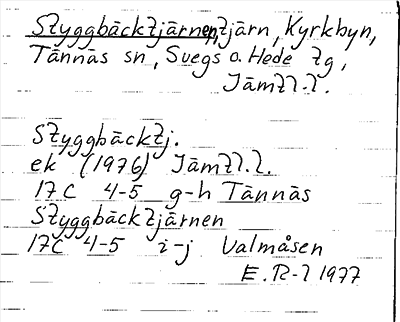 Styggbäcktjärnen, tjärn, Kyrkbyn,
Tännäs sn, Svegs o. Hede tg,
Jämtl. l.
Styggbäcktj.
ek (1976) Jämtl. l.
17C 4-5 g-h Tännäs
Styggbäcktjärnen
17C 4-5 i-j Valmåsen
E. R-l 1977